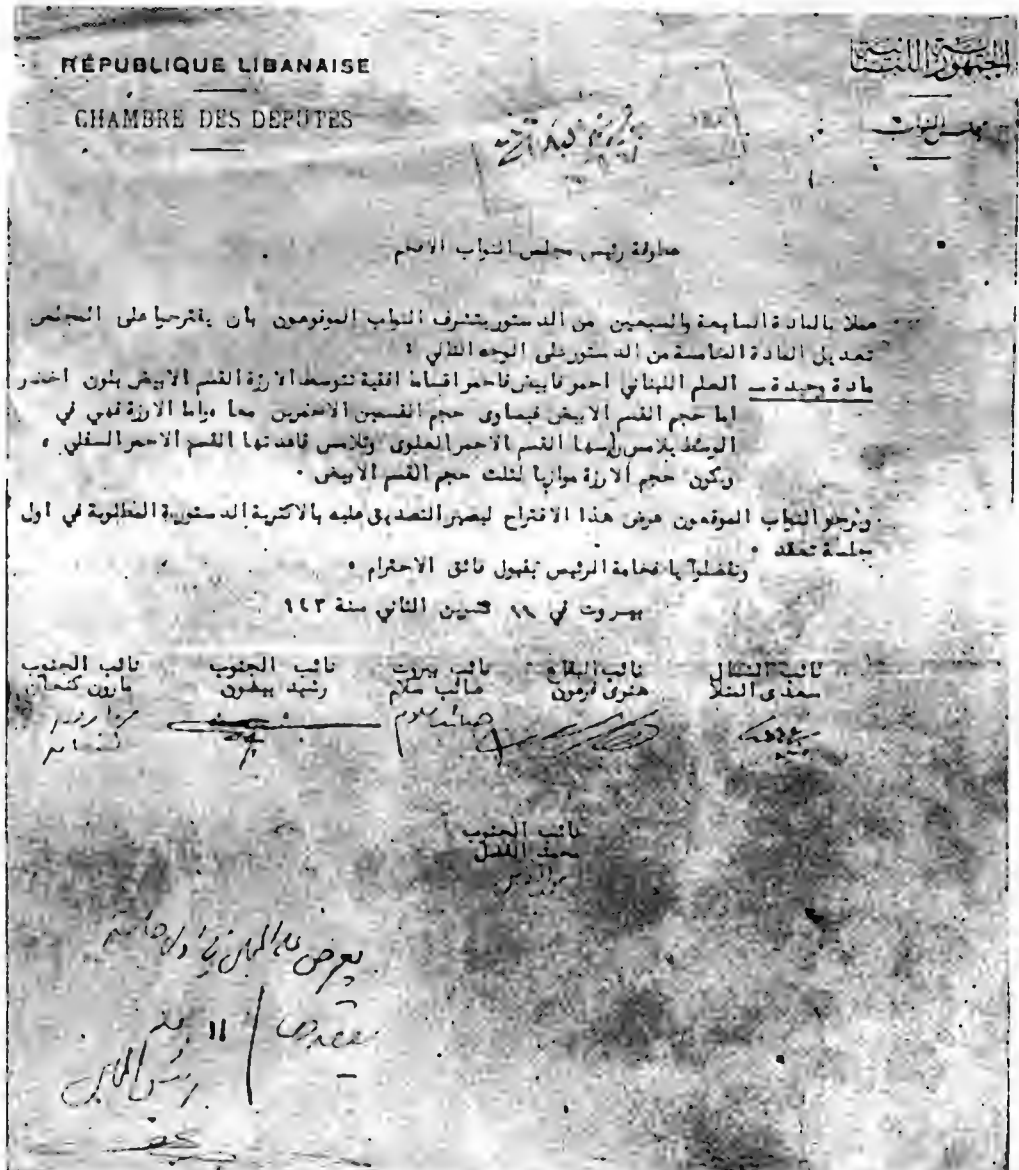 RÉPUBLIQUE LIBANAISE
CHAMBRE DES DEPUTES
الجمهورية اللبنانية
مجلس النواب
رئيس مجلس النواب الافخم
عملا بالمادة السابعة والسبعين من الدستور يتشرف النواب الموقعون بان يقترحوا على المجلس
تعديل المادة الخامسة من الدستور على الوجه التالي :
مادة وحيدة ــ العلم اللبناني احمر فابيض فاحمر اقساط افقية تتوسط الارزة القسم الابيض بلون اخضر
اما حجم القسم الابيض فيساوى حجم القسمين الاحمرين معا واما الارزة فهي في
الوسط يلامس رأسها القسم الاحمر العلوى وتلامس قاعدتها القسم الاحمر السفلي .
ويكون حجم الارزة موازيا لثلث حجم القسم الابيض .
ويرجو النواب الموقعون عرض هذا الاقتراح ليصير التصديق عليه بالاكثرية الدستورية المطلوبة في اول
جلسة تعقد .
وتفضلوا يا فخامة الرئيس بقبول فائق الاحترام .
بيروت في ١١ تشرين الثاني سنة ٩٤٣
نائب الشمال نائب البقاع نائب بيروت نائب الجنوب نائب الجنوب
سعدى المنلا هنرى فرعون صائب سلام رشيد بيضون مارون كنعان
صائب سلام
نائب الجنوب
محمد الفضل
يعرض على المجلس في اول جلسة
يعقدها
١١
رئيس المجلس